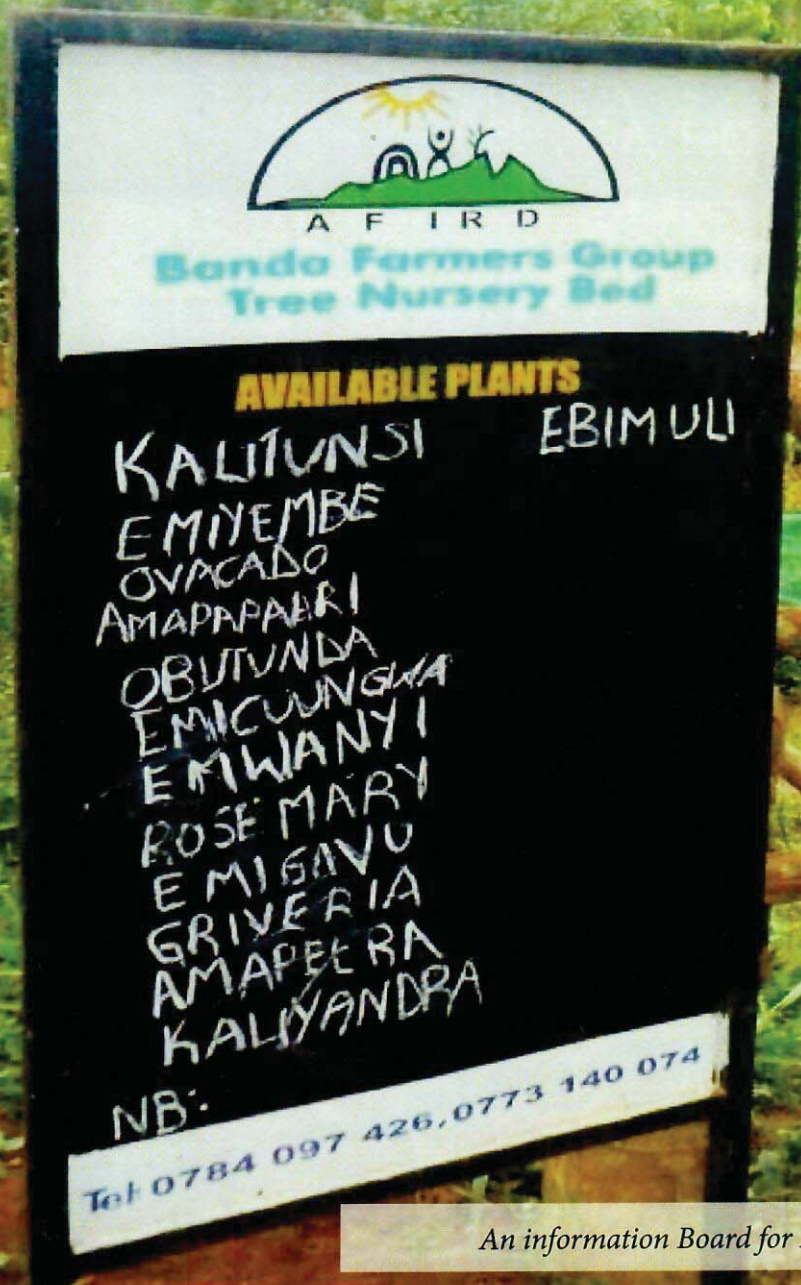 AFIRD
Banda Farmers Group
Tree Nursery Bed
AVAILABLE PLANTS
KALITUNSI
EMIYEMBE
OVACADO
AMAPAPAARI
OBUTUNDA
EMICUUNGWA
EMWANYI
ROSEMARY
EMIGAVU
GRIVERIA
AMAPEERA
KALIYANDRA
EBIMULI
NB:
Tel: 0784 097 426, 0773 140 074
An information Board for